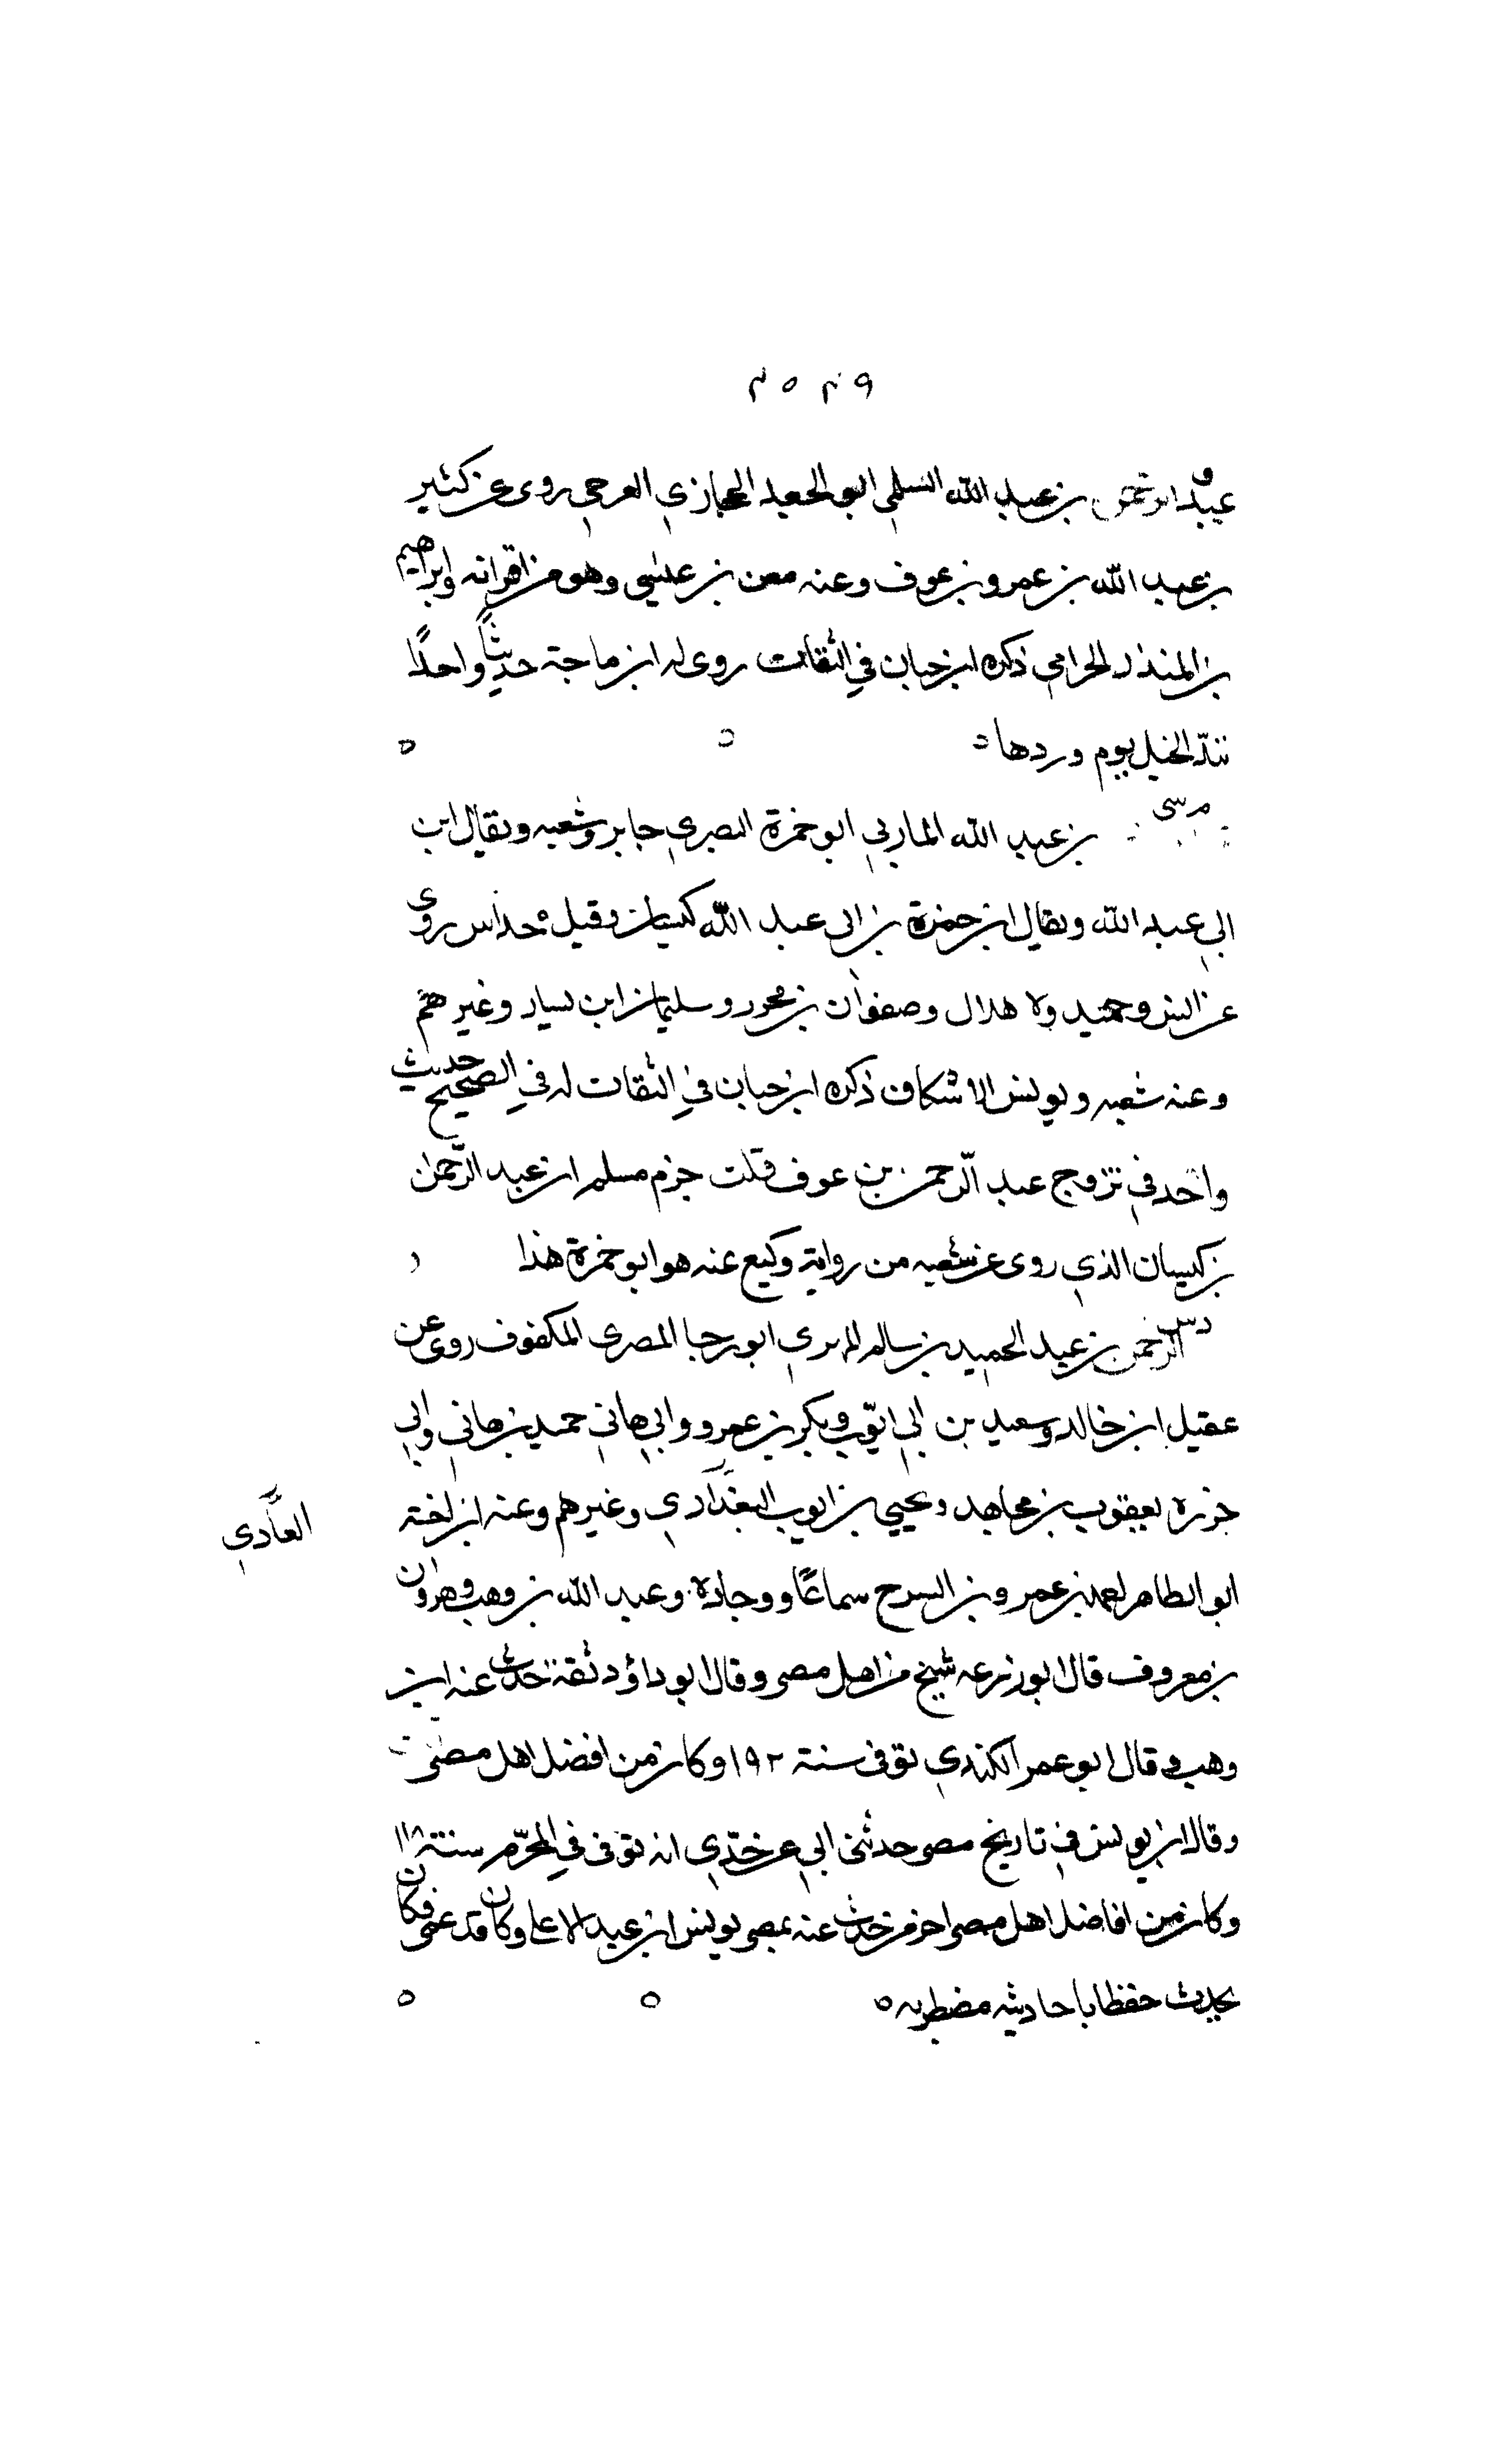 عبد الرحمن بن عبد الله السلمي ابو الجعد الحجازي العرجي روى عن كثير
بن عبد الله بن عمرو بن عوف وعنه معن بن عيسى وهو من اقرانه وابراهيم
بن المنذر الحزامي ذكره ابن حبان في الثقات روى له ابن ماجة حديثاً واحداً
تبدّ الخيل يوم وردها
بن عبد الله المازني ابو حمزة البصري جابر وشعبه ويقال ابن
ابي عبد الله ويقال ابن حمزة بن ابى عبد الله كيسان وقيل خداس روى
عن انس وحميد وهلال وصفوان بن محرز وسليمان ابن يسار وغيرهم
وعنه شعبه ويونس الاسكاف ذكره ابن حبان في الثقات له في الصحيح حديث
واحد في تزوج عبد الرحمن بن عوف قلت جزم مسلم ان عبد الرحمن
بن كيسان الذي روى عن شعبه من رواية وكيع عنه هو ابو حمزة هذا
الرحمن بن عبد الحميد بن سالم المهري ابو رجا المصرى المكفوف روى عن
عقيل ابن خالد وسعيد بن ابي ايّوب وبكر بن عمرو وابي هاني حميد بن هانى وابي
حزره يعقوب بن مجاهد ويحيي بن ايوب البغدادي وغيرهم وعنه ابن اخته
ابو الطاهر احمد بن عمرو بن السرح سماعًا ووجادة وعبد الله بن وهب وهرون
بن معروف قال ابو زرعه شيخ من اهل مصر وقال ابو داؤد ثقة حدث عنه ابن
وهب وقال ابو عمر الكندي توفى سنة ١٩٢ وكان من افضل اهل مصر
وقال ابن يونس في تاريخ مصر حدثنى ابي عن جدّي انه توفى في المحرّم سنة
وكان من افاضل اهل مصر اخر من حدث عنه بمصر يونس ابن عبد الاعلى وكان قد عمى فكان
يحدث حفظا باحاديثه مضطربه